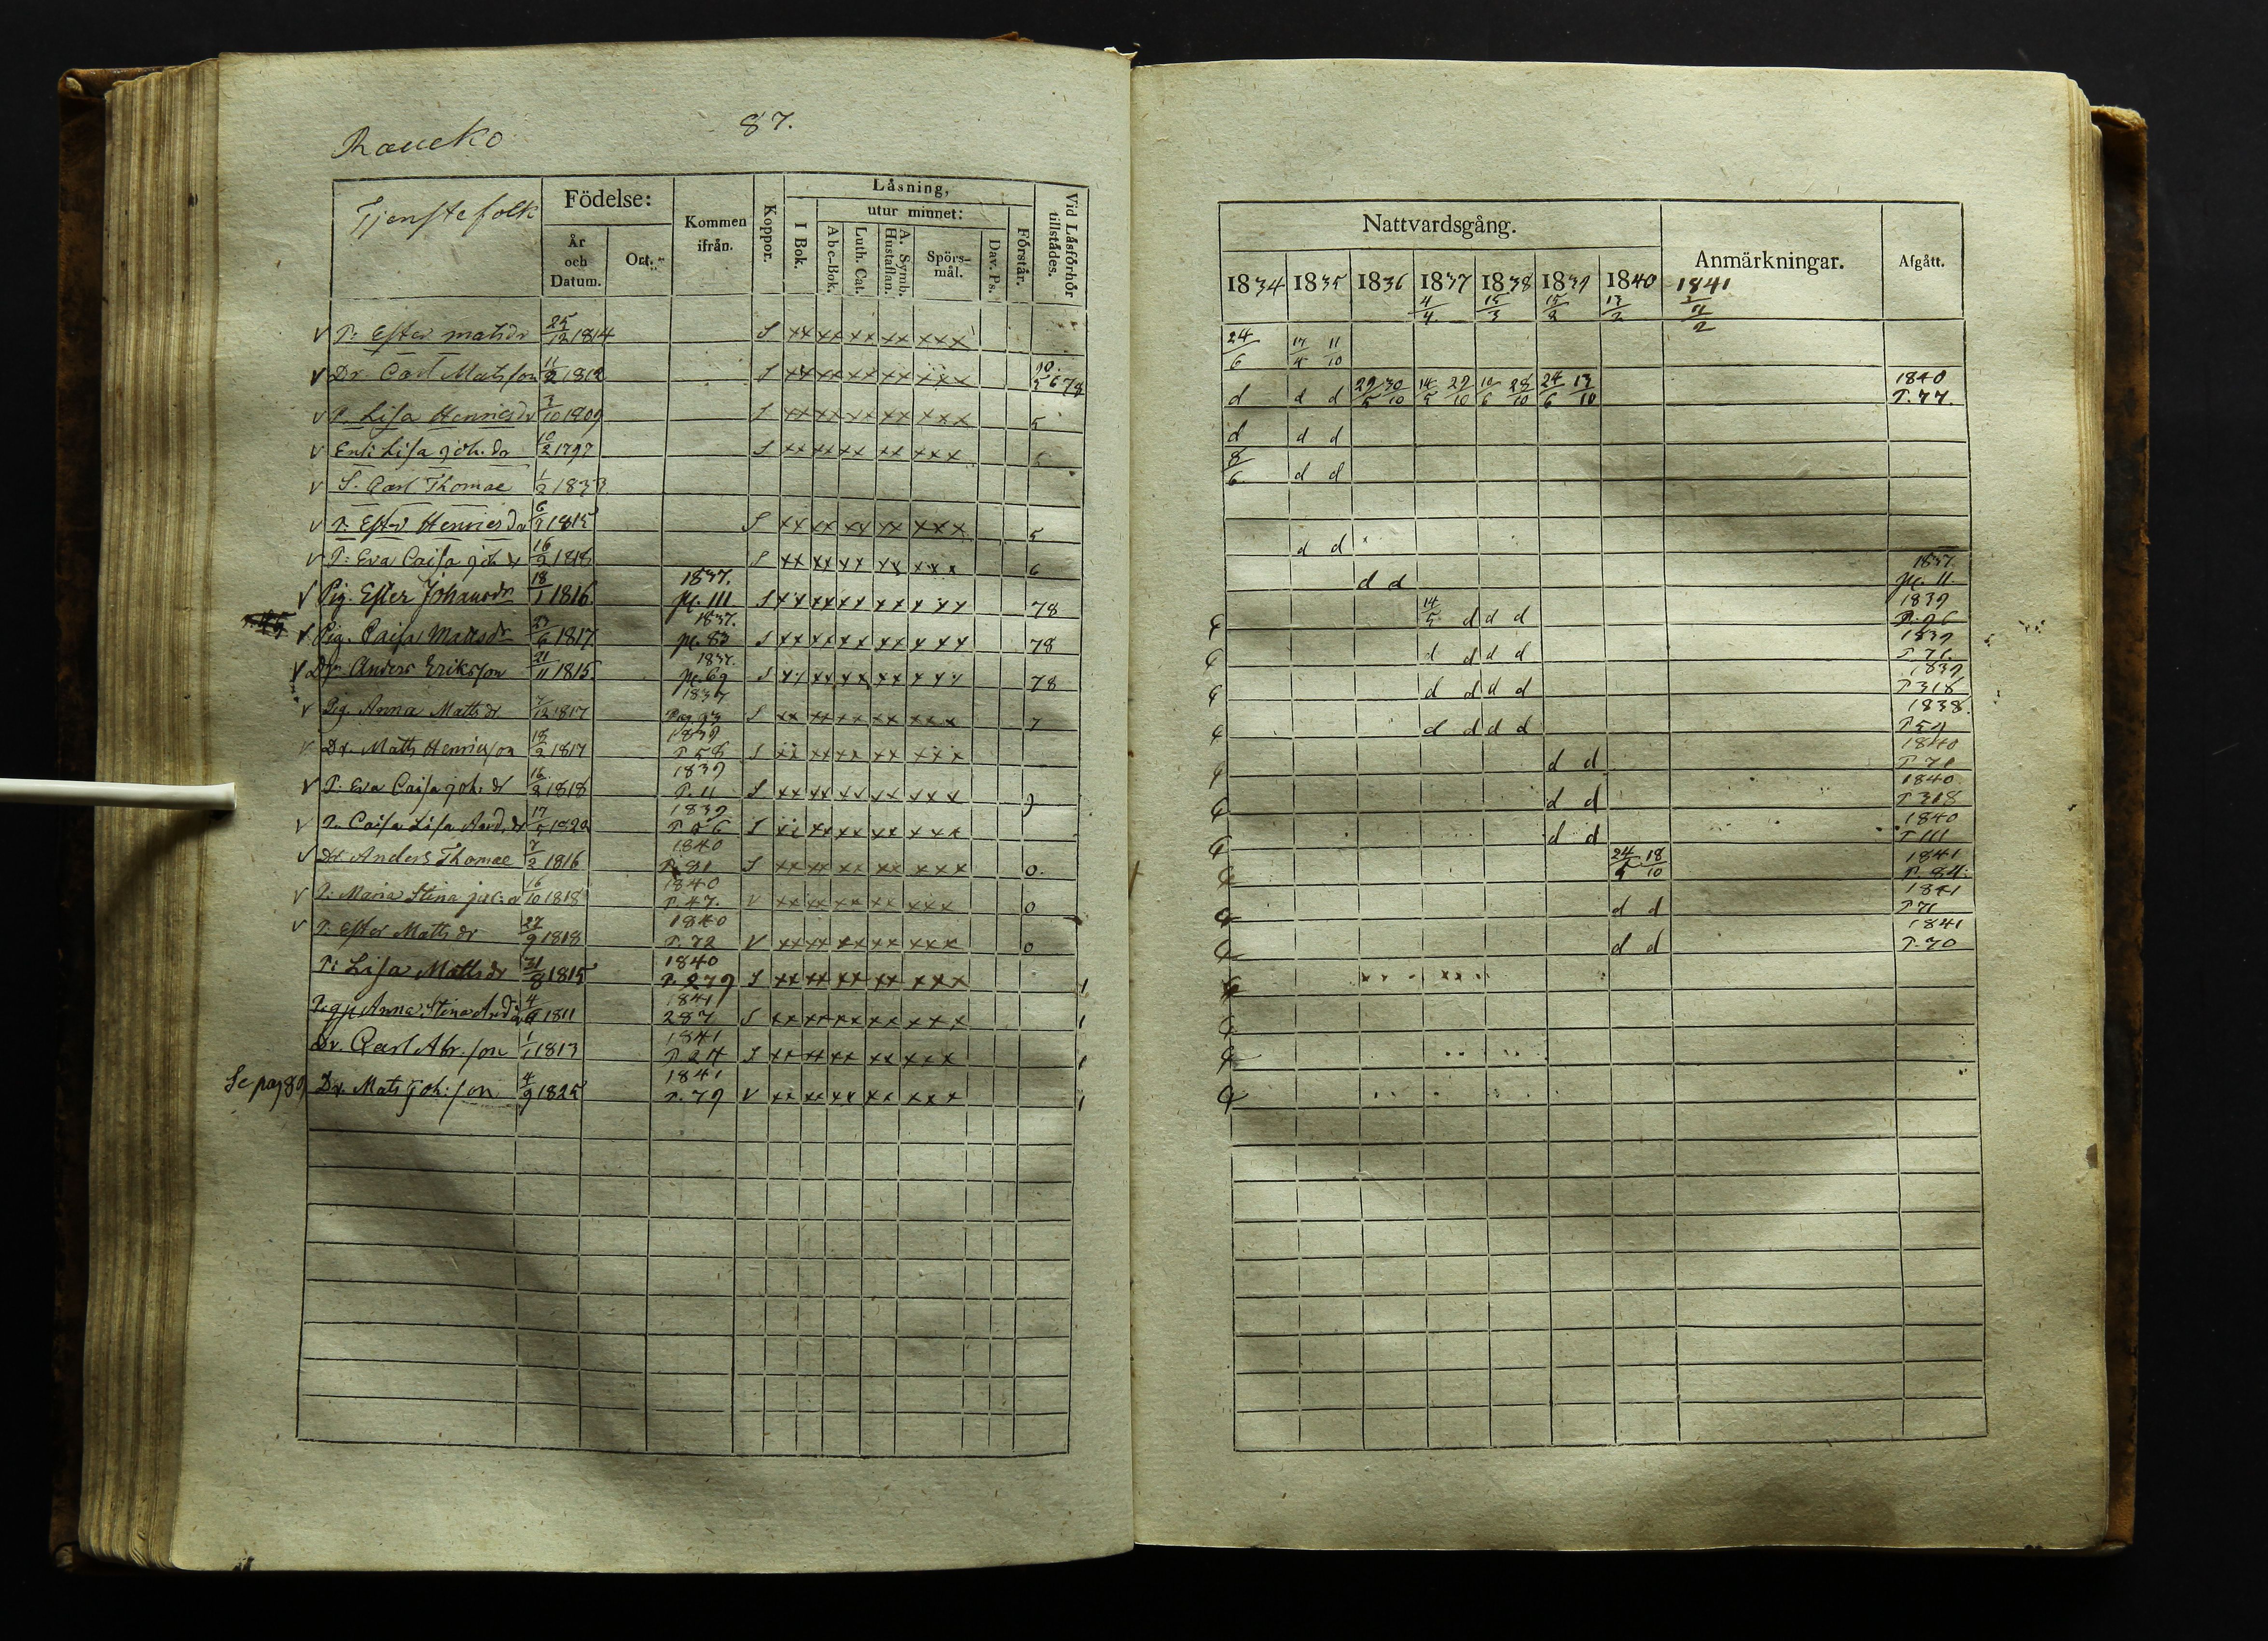 Raucko 87.
Tjenstefolk Födelse: År och Datum. Ort. Kommen ifrån. Koppor. Låsning, I Bok. utur minnet: Abc-Bok. Luth. Cat. A. Symb. Hustaflan. Spörs-mål. Dav. Ps. Förstår. Vid Låsförhör tillstådes.
v P: Ester matsdr 25/12 1814 S xx xx xx xx xxx
v Dr Carl Matsson 11/2 1812 S xx xx xx xx xxx 10. 5 6 7 8
v P. Lisa Henricsdr 3/10 1809 S xx xx xx xx xxx 5
v Enk: Lisa joh. dr 10/2 1797 S xx xx xx xx xxx 5
v S. Carl Thomae 1/2 1833
v P. Ester Henricsdr 6/7 1815 S xx xx xx xx xxx 5
v P: Eva Caisa joh dr 16/2 1818 S xx xx xx xx xxx 6
v Pig. Ester Johansdr 18/1 1816. 1837. pc. 111 S xx xx xx xx xxx 78
v Pig. Caisa Mattsdr 23/6 1817. 1837. pc. 83 S xx xx xx xx xxx 78
v Dr. Anders Eriksson 21/11 1815. 1837. pc. 69 S xx xx xx xx xxx 78
v Pig. Anna Matts dr 7/12 1817 1837 Pag 93 S xx xx xx xx xxx 7
v Dr. Matts Henricsson 18/2 1817 1839 P 58 S xx xx xx xx xxx
v P: Eva Caisa joh. dr 16/2 1818 1839 P. 11 S xx xx xx xx xxx 9
v P. Caisa Lisa And. dr 17/5 1820 1839 P. 96 S xx xx xx xx xxx
v Dr Anders Thomae 7/2 1816 1840 P. 81 S xx xx xx xx xxx 0.
v P: Maria Stina jac: dr 16/10 1818 1840 P. 47. V xx xx xx xx xxx 0
v P. Ester Matts dr 27/9 1818 1840 P. 72 V xx xx xx xx xxx 0
P: Lisa Mattsdr 31/8 1815 1840 P. 279 S xx xx xx xx xxx 1
Anna Stina And: dr 4/6 1811 1841 287 S xx xx xx xx xxx 1
Dr. Carl Abr. son 1/1 1813 1841 P 24 S xx xx xx xx xxx 1
Se pag 89 Dr. Mats Joh: son 4/9 1825 1841 P. 79 V xx xx xx xx xxx 1
Nattvardsgång. Anmärkningar. Afgått.
1834 1835 1836 1837 1838 1839 1840 1841
4/4 15/3 15/2 13/2
24/6 17/5 11/10
d d d 29/5 30/10 14/5 29/10 10/6 28/10 24/6 13/10 1840 P. 77.
d d d
8/6 d d
d d
d d 1837. pc. 11
14/5 d d d 1839 P. 96
d d d d 1839 P 71.
d d d d 1839 P 318
d d d d 1838. P 59
d d 1840 P 71
d d 1840 P 318
d d 1840 P 111
24/5 18/10 1841 P. 84.
d d 1841 P 71
d d 1841 P. 70